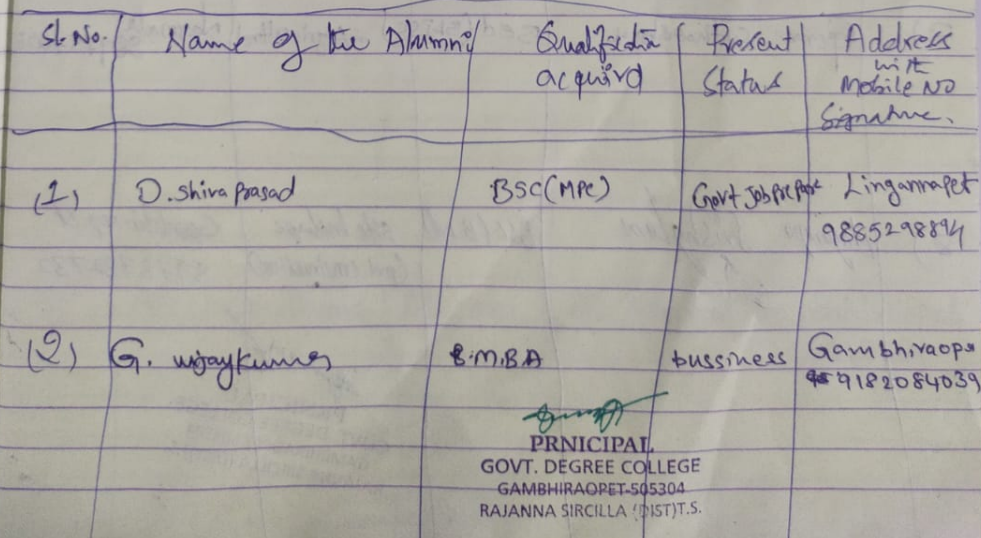 Sl. No. Name of the Alumni Qualification Present Address
acquird Status with
Mobile NO
Signature.
(1) D. Shiva prasad BSC (MPC) Govt Job prepare Lingannapet
9885298894
(2) G. vijaykumar B.M.B.A bussiness Gambhiraope
9182084039
PRNICIPAL
GOVT. DEGREE COLLEGE
GAMBHIRAOPET-505304
RAJANNA SIRCILLA (DIST)T.S.